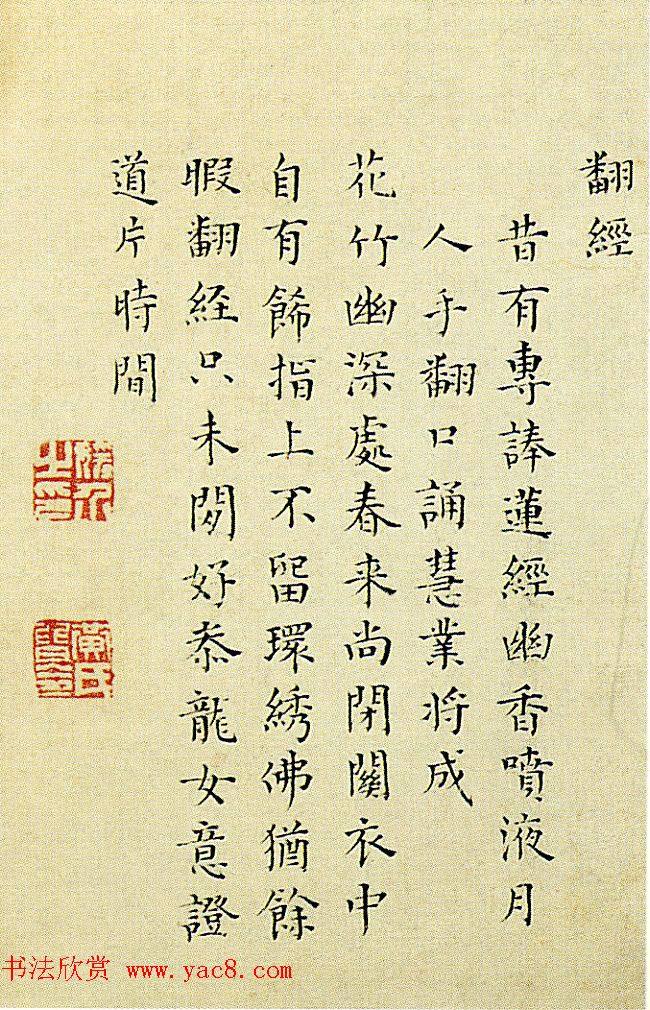 翻經
昔有專蓮經幽香噴液月
人手翻口誦慧業将成
花竹幽深處春来尚閉關衣中
自有餙指上不留環綉佛猶餘
暇翻経只未好叅龍女意證
道片時間
书法欣赏 www.yac8.com